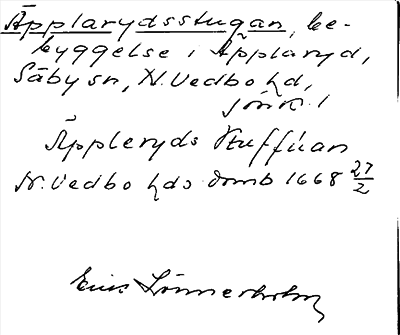 Äpplarydsstugan, be-
byggelse i Äpplaryd,
Säby sn, N. Vedbo hd,
Jönk. l
Äppleryds Stuffúan
N. Vedbo hds domb 1668 27/2
Eric Lönnerholm